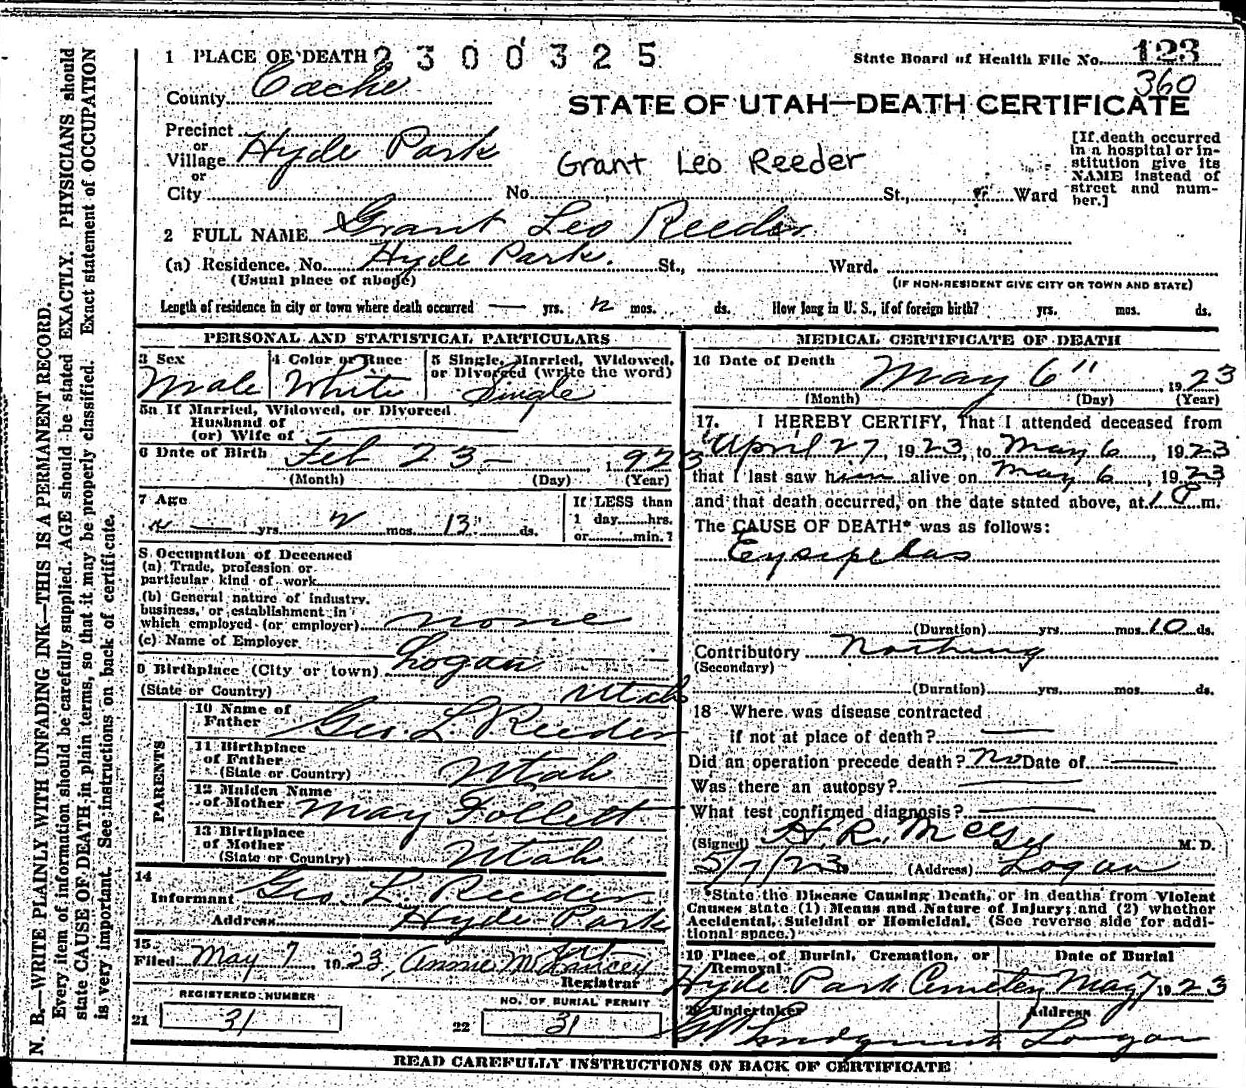 1 PLACE OF DEATH 2 3 0 0 3 2 5
State Board of Health File No. 123
360
County Cache
STATE OF UTAH—DEATH CERTIFICATE
Precinct
or
Village Hyde Park
or
City
No. St., Ward
[If death occurred
in a hospital or in-
stitution give its
NAME instead of
street and num-
ber.]
Grant Leo Reeder
2 FULL NAME Grant Leo Reeder
(a) Residence. No. Hyde Park. St., Ward.
(Usual place of abode)
(IF NON-RESIDENT GIVE CITY OR TOWN AND STATE)
Length of residence in city or town where death occurred — yrs. 2 mos. ds. How long in U. S., if of foreign birth? yrs. mos. ds.
PERSONAL AND STATISTICAL PARTICULARS
3 Sex
Male
4 Color or Race
White
5 Single, Married, Widowed,
or Divorced (write the word)
Single
5a If Married, Widowed, or Divorced
Husband of
(or) Wife of
6 Date of Birth Feb 23— 1923
(Month) (Day) (Year)
7 Age
yrs. 2 mos. 13 ds.
If LESS than
1 day hrs.
or min.?
8 Occupation of Deceased
(a) Trade, profession or
particular kind of work
(b) General nature of industry,
business, or establishment in
which employed (or employer) none
(c) Name of Employer
9 Birthplace (City or town) Logan
(State or Country) Utah
PARENTS
10 Name of
Father Geo. L. Reeder
11 Birthplace
of Father
(State or Country) Utah
12 Maiden Name
of Mother May Follett
13 Birthplace
of Mother
(State or Country) Utah
14
Informant Geo. L. Reeder
Address Hyde Park
15
Filed May 7, 1923, Annie
Registrar
REGISTERED NUMBER
21 31
NO. OF BURIAL PERMIT
22 31
MEDICAL CERTIFICATE OF DEATH
16 Date of Death
May 6" 1923
(Month) (Day) (Year)
17. I HEREBY CERTIFY, That I attended deceased from
April 27, 1923, to May 6, 1923
that I last saw him alive on May 6, 1923
and that death occurred, on the date stated above, at 1 P m.
The CAUSE OF DEATH* was as follows:
Eysipelas
(Duration) yrs. mos. 10 ds.
Contributory Nothing
(Secondary)
(Duration) yrs. mos. ds.
18 Where was disease contracted
if not at place of death? —
Did an operation precede death? No Date of —
Was there an autopsy? —
What test confirmed diagnosis? —
(Signed) H. R. McGee M. D.
5/7/23 (Address) Logan
*State the Disease Causing Death, or in deaths from Violent
Causes state (1) Means and Nature of Injury; and (2) whether
Accidental, Suicidal or Homicidal. (See reverse side for addi-
tional space.)
19 Place of Burial, Cremation, or
Removal
Hyde Park Cemetery
Date of Burial
May 7 1923
20 Undertaker
Lindquist
Address
Logan
READ CAREFULLY INSTRUCTIONS ON BACK OF CERTIFICATE
N. B.—WRITE PLAINLY WITH UNFADING INK—THIS IS A PERMANENT RECORD.
Every item of information should be carefully supplied. AGE should be stated EXACTLY. PHYSICIANS should
state CAUSE OF DEATH in plain terms, so that it may be properly classified. Exact statement of OCCUPATION
is very important. See instructions on back of certificate.